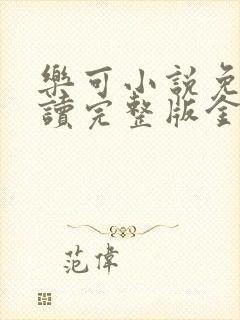 樂可小說免
讀完整版全
范偉